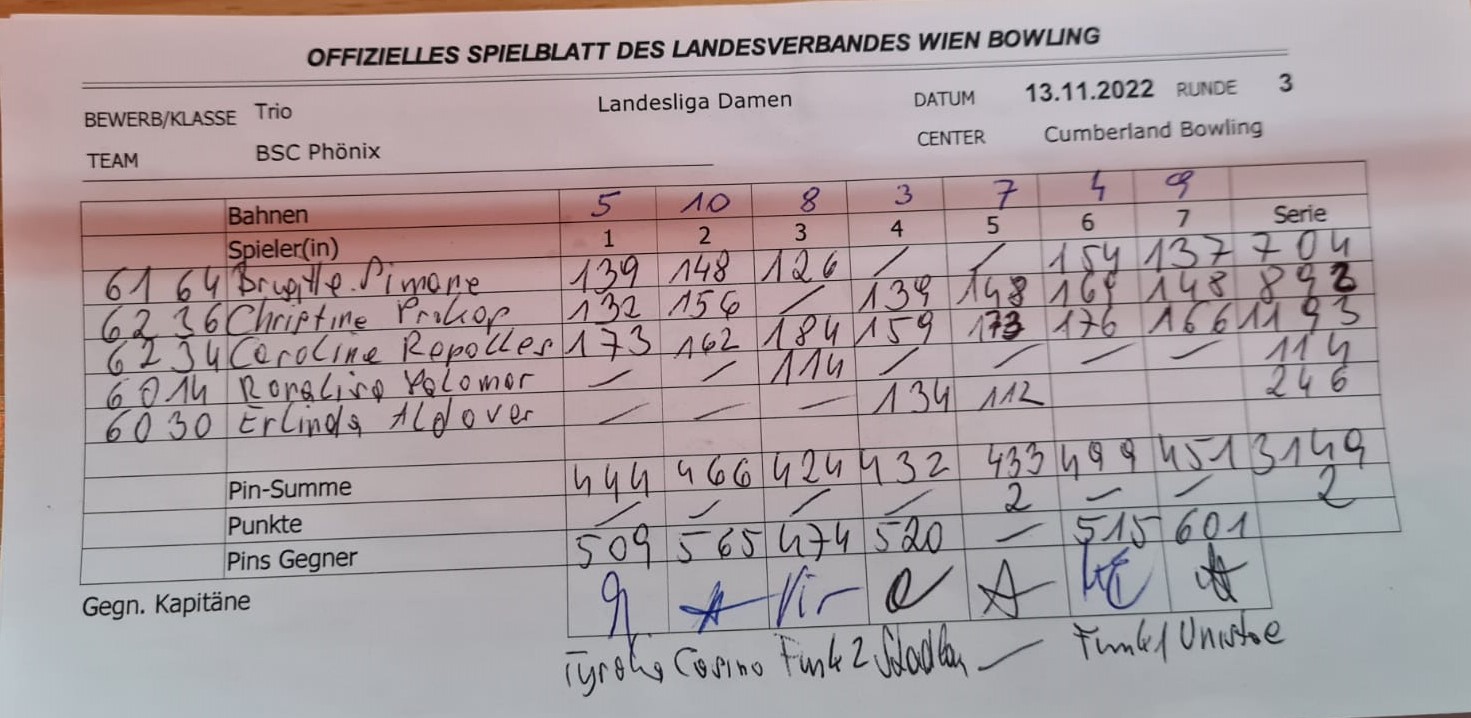 OFFIZIELLES SPIELBLATT DES LANDESVERBANDES WIEN BOWLING
BEWERB/KLASSE Trio Landesliga Damen DATUM 13.11.2022 RUNDE 3
TEAM BSC Phönix CENTER Cumberland Bowling
Bahnen 5 10 8 3 7 4 9
Spieler(in) 1 2 3 4 5 6 7 Serie
6164 Brigitte Simane 139 148 126 / / 154 137 704
6236 Christine Prokop 132 156 / 139 148 169 148 892
6234 Caroline Ropolles 173 162 184 159 173 176 166 1193
6014 Ronaliza Palomar – – 114 – – – – 114
6030 Erlinda Aldover – – – 134 112 246
Pin-Summe 444 466 424 432 433 499 451 3149
Punkte – – – – 2 – – 2
Pins Gegner 509 565 474 520 – 515 601
Gegn. Kapitäne
Cosino Funk 2 – Funk 1